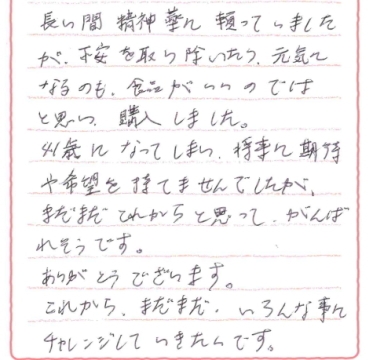 長い間 精神薬に 頼っていました
が、不安を取り除いたり、元気に
なるのも、食品がいいのでは
と思い、購入しました。
病気になってしまい、将来に期待
や希望を持てませんでしたが、
まだまだこれからと思って、がんば
れそうです。
ありがとうございます。
これから、まだまだ、いろんな事に
チャレンジして いきたいです。